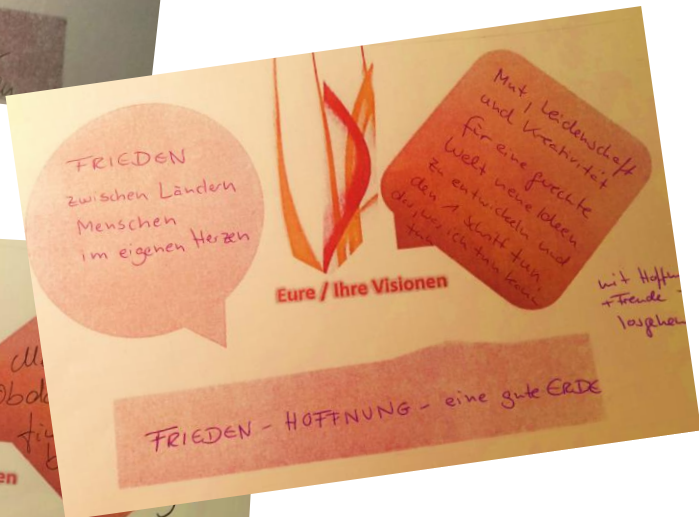 FRIEDEN
zwischen Ländern
Menschen
im eigenen Herzen
Mut, Leidenschaft
und Kreativität
für eine gerechte
Welt neue Ideen
zu entwickeln und
den 1. Schritt tun,
den, wer ich tun kann
tun
Eure / Ihre Visionen
mit Hoffnung
+ Freude
losgehen
FRIEDEN - HOFFNUNG - eine gute ERDE
en